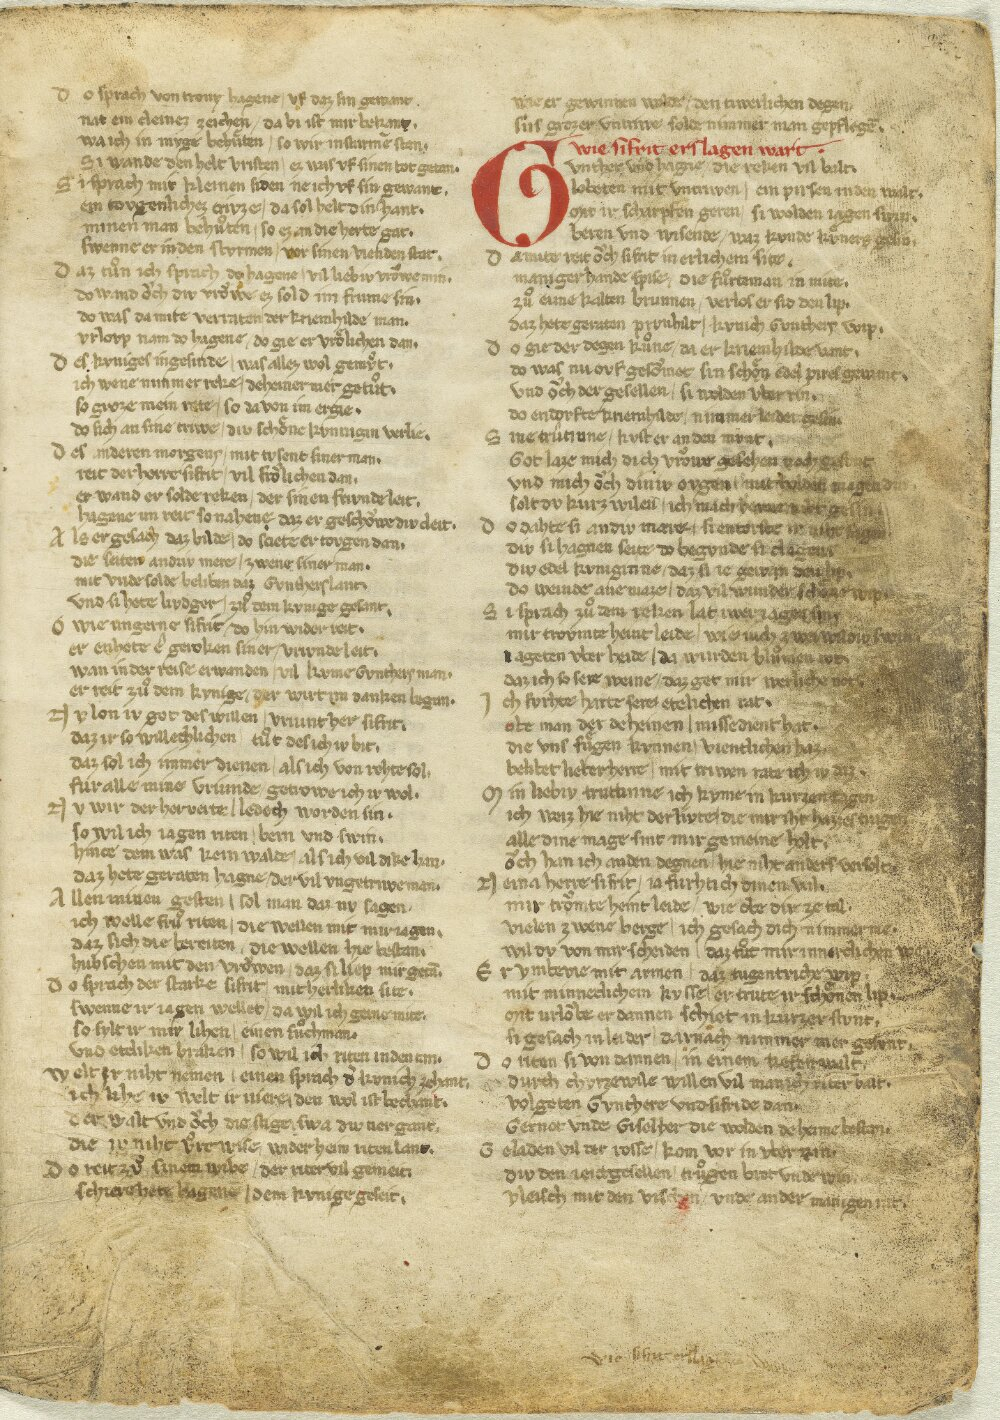 D o sprach von trony hagene / vf daz sin gewant.
nat ein cleinez zeichen / da bi ist mir bekant.
wa ich in myge behůten / so wir in sturme sten.
Si wande den helt vristen / ez was vf sinen tot getan.
S i sprach mit kleinen siden ne ich vf sin gewant.
ein tovgenlichez crvze / da sol helt din hant.
minen man behůten / so ez an die herte gat.
swenne er in den stvrmen / vor sinen vienden stat.
D az tůn ich sprach do hagene / vil liebiv vrowe min.
do wand och div vrowe ez sold im frume sin.
do was da mite verraten der kriemhilde man.
vrlovp nam do hagene / do gie er vrolichen dan.
D es kvniges ingesinde / was allez wol gemvt.
ich wene nimmer reke / deheiner mer getůt.
so groze mein rete / so da von im ergie.
do sich an sine triwe / div schone kvnigin verlie.
D es anderen morgens / mit tvsent siner man.
reit der herre sifrit / vil frolichen dan.
er wand er solde reken / der sinen frivnde leit.
hagene im reit so nahene daz er geschowe div cleit.
A ls er gesach daz bilde / do sciete er tovgen dan.
die seiten andriv mere / zwene siner man.
mit vride solde beliben daz Gvntherslant.
vnd si hete livdger / zů dem kvnige gesant.
O wie vngerne sifrit / do hin wider reit.
er enhete e geroken siner / vrivnde leit.
wan in der reise erwanden / vil kvme Gvnthers man.
er reit zů dem kvnige / der wirt im danken began.
N v lon iv got des willen / vriunt her sifrit.
daz ir so willechlichen / tůt des ich iv bit.
daz sol ich immer dienen / als ich von rehte sol.
fur alle mine vriunde getrowe ich iv wol.
N v wir der herverte / ledech worden sin.
so wil ich iagen riten / bern vnd swin.
hince dem was kem walde / als ich vil dike han.
daz hete geraten hagne / der vil vngetriwe man.
A llen minen gesten / sol man daz nv sagen.
ich welle frů riten / die wellen mit mir iagen.
daz sich die bereiten / die wellen hie bestan.
hubschen mit den vrowen / daz si liep mir getan.
D o sprach der starke sifrit / mit herliken site.
swenne ir iagen wellet / da wil ich gerne mite.
so svlt ir mir lihen / einen sůchman.
vnd etliken braken / so wil ich riten in den tan.
W elt ir niht nemen / einen sprach der kvnich zehant.
ich lihe iv welt ir viere / den wol ist bechant.
der walt vnd och die stige / swa div tier gant.
die iv niht vůre wise / wider heim riten lant.
D o reit zů sinem wibe / der riter vil gemeit.
schiere hete hagene / dem kvnige geseit.
wie er gewinnen wolde / den tiwerlichen degen.
sus grozer vntriwe solde nimmer man gepflegen.
wie sifrit erslagen wart.
G vnther vnd hagne / die reken vil balt.
lobeten mit vntriwen / ein pirsen in den walt.
mit ir scharpfen geren / si wolden iagen swin.
beren vnd wisende / waz kvnde kůners gesin.
D a mite reit och sifrit in erlichem site.
maniger hande spise / die fůrte man in mite.
zů eime kalten brunnen / verlos er sid den lip.
daz hete geraten prvnhilt / kvnich Gvnthers wip.
D o gie der degen kůne / da er kriemhilde vant.
do was nu ovf gesomet sin schon edel pirsgewant.
vnd och der gesellen / si wolden vber rin.
do endorfte kriemhilde / nimmer leider gesin.
S ine trutinne / kvst er an den mvnt.
Got laze mich dich vrowe gesehen noch gesunt
vnd mich och diniv ovgen / mit holden magen din
solt dv kurzwilen / ich mach heime niht gesin.
D o dahte si andiv mere / si entorste in niht sagen
div si hagnen seite do begvnde si clagen
div edel kvniginne / daz si ie gewan den lip.
do weinde ane maze / daz vil wunder schone wip.
S i sprach zů dem reken lat iwer iagen sin
mir trovmte heint leide / wie iuch zwei wildiv swin
iageten vber heide / da wurden blůmen rot.
daz ich so sere weine / daz get mir werliche not.
I ch furhte harte sere etelichen rat.
obe man der deheinen / missedienet hat.
die vns fůgen kvnnen / vientlichen haz.
belibet lieber herre / mit triwen rate ich iv daz.
M in liebiv trutinne ich kvme in kurzen tagen
ich weiz hie niht der livte / die mir iht hazes tragen
alle dine mage sint mir gemeine holt.
och han ich an den degnen / hie niht anders versolt.
N eina herre sifrit / ia furht ich dinen val.
mir tromte heint leide / wie obe dir ze tal.
vielen zwene berge / ich gesach dich nimmer me.
wil dv von mir scheiden / daz tůt mir innerclichen we
E r vmbevie mit armen / daz tugentriche wip.
mit minneclichem kvsse / er trute ir schonen lip.
mit urlobe er dannen / schiet in kurzer stvnt.
si gesach in leider / darnach nimmer mer gesunt.
D o riten si von dannen / in einem tiefen walt.
durch chvrzewile willen vil manich riter balt.
volgeten Gvnthere vnd sifride dan.
Gernot vnde Giselher die wolden da heime bestan.
G eladen vil der rosse / kom vor in vber rin.
div den iedgesellen / trůgen brot vnde win.
vleisch mit den vischen / vnde ander manigen rat.
wie sifrit erslagen